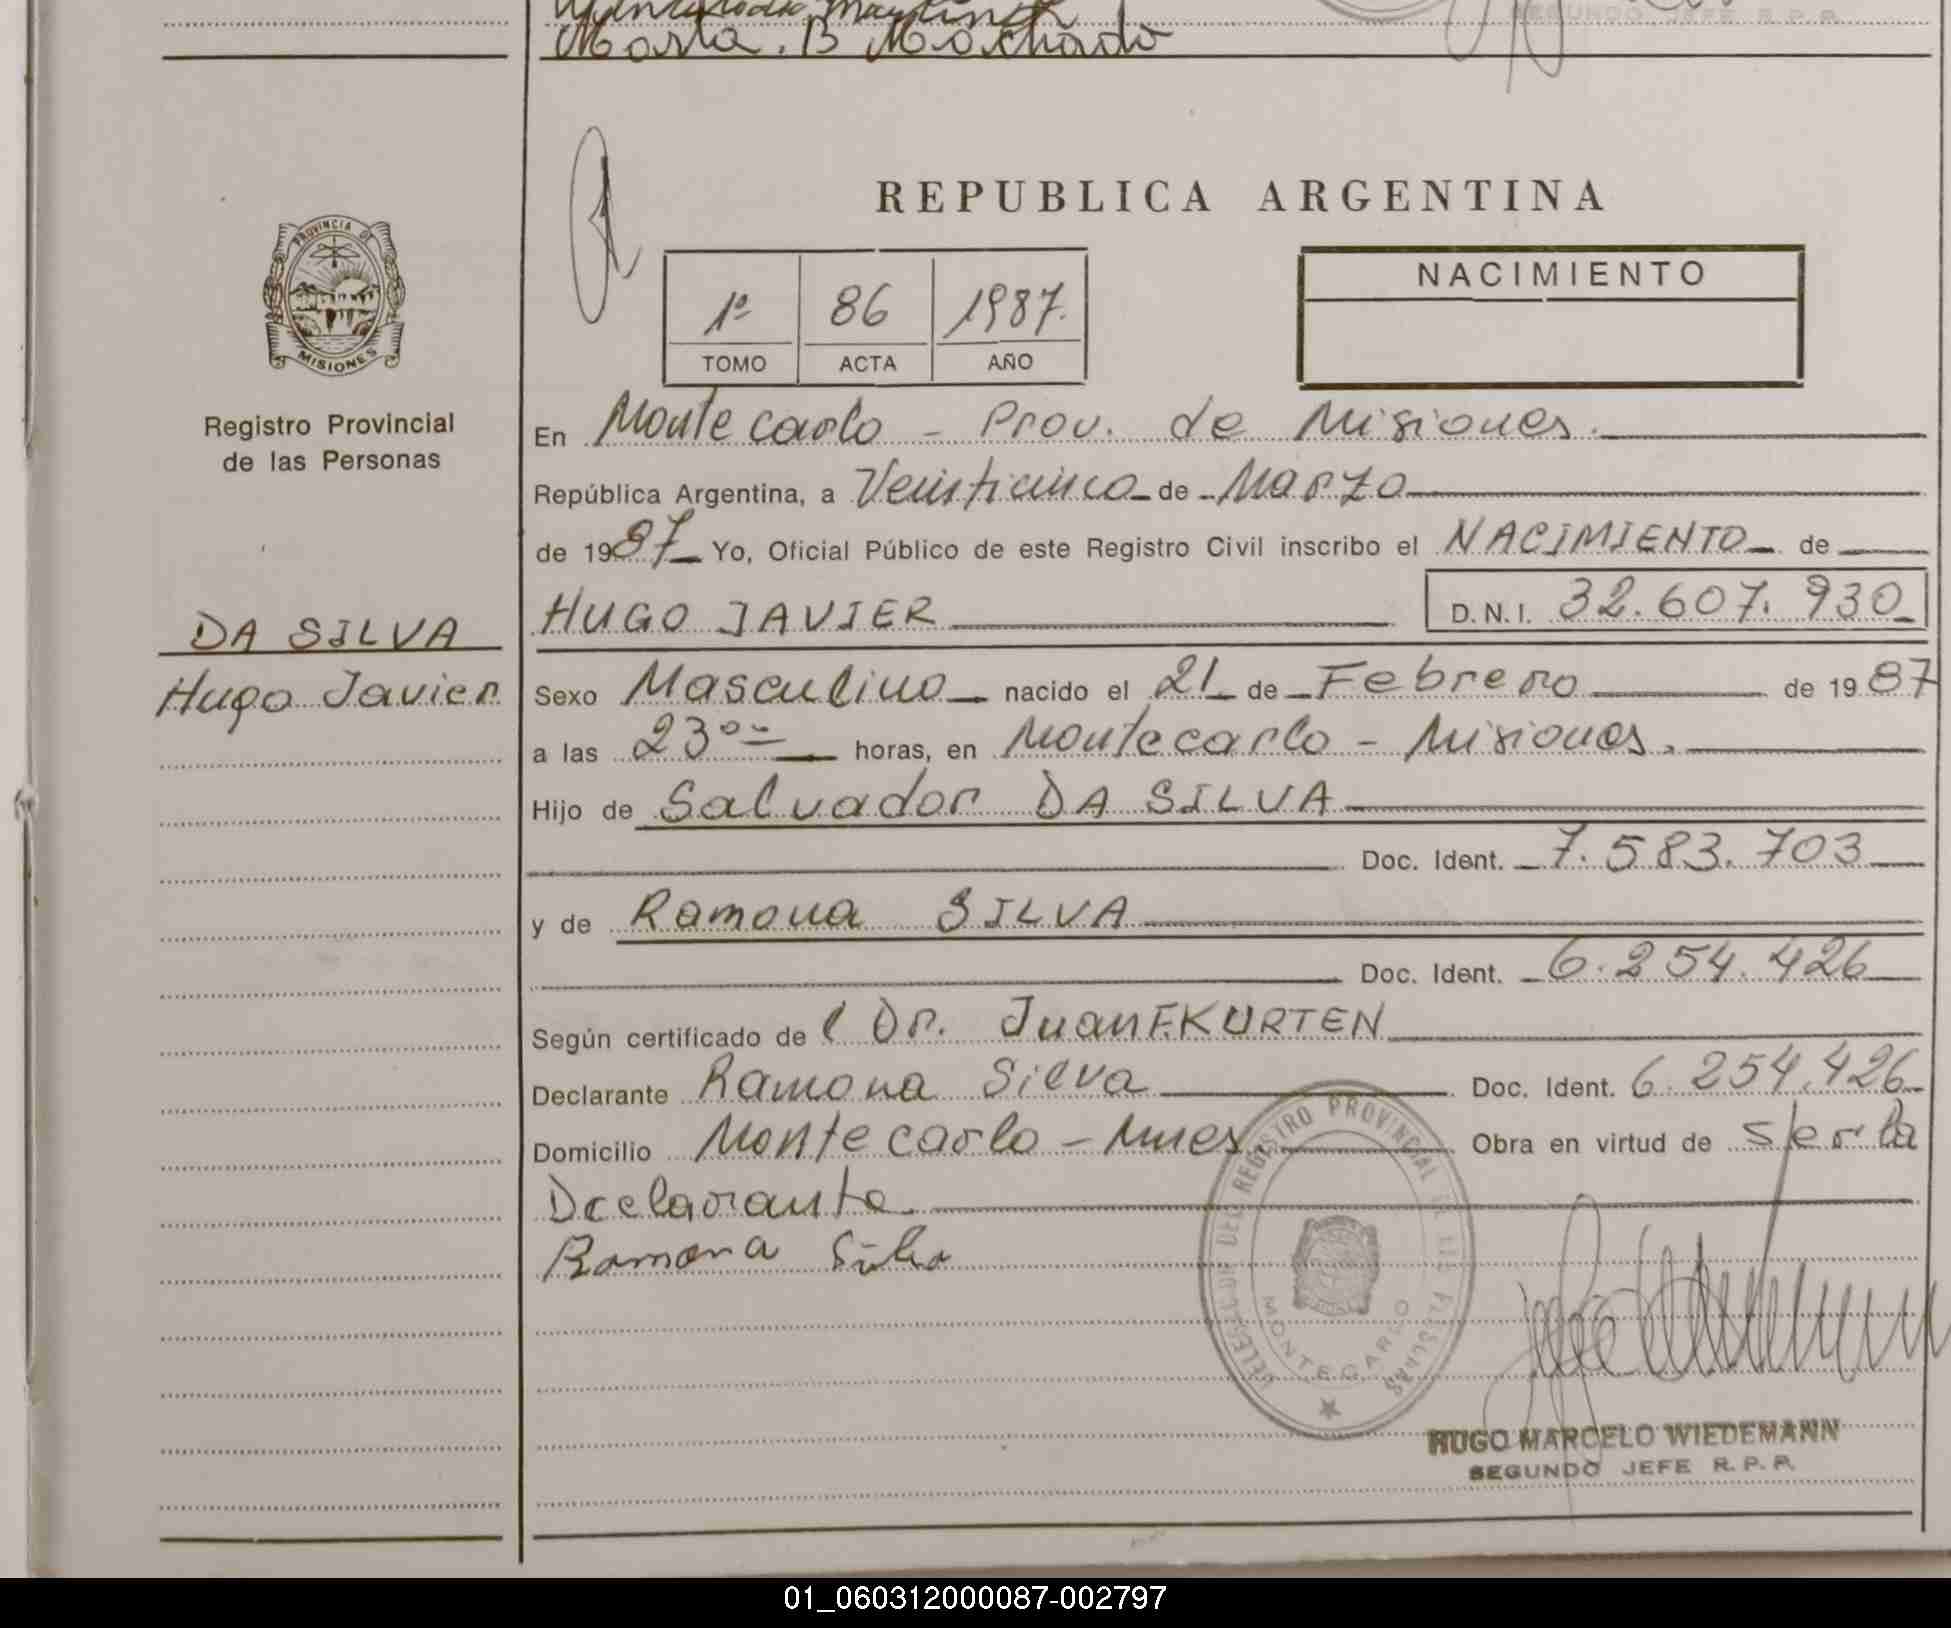 Marta. B Machado
SEGUNDO JEFE R. P. P.
REPUBLICA ARGENTINA
PROVINCIA DE
MISIONES
Registro Provincial
de las Personas
DA SILVA
Hugo Javier
1º 86 1987.
TOMO ACTA AÑO
NACIMIENTO
En Montecarlo - Prov. de Misiones.
República Argentina, a Veinticinco de Marzo
de 1987 Yo, Oficial Público de este Registro Civil inscribo el NACIMIENTO de
HUGO JAVIER D.N.I. 32.607.930
Sexo Masculino nacido el 21 de Febrero de 1987
a las 23 00 horas, en Montecarlo - Misiones.
Hijo de Salvador DA SILVA
Doc. Ident. 7.583.703
y de Ramona SILVA
Doc. Ident. 6.254.426
Según certificado de l Dr. Juan F. KURTEN
Declarante Ramona Silva Doc. Ident. 6.254.426
Domicilio Montecarlo - Mnes. Obra en virtud de ser la
Declarante.
Ramona Silva
REGISTRO PROVINCIAL DE LAS PERSONAS
MONTECARLO
HUGO MARCELO WIEDEMANN
SEGUNDO JEFE R. P. P.
01_060312000087-002797